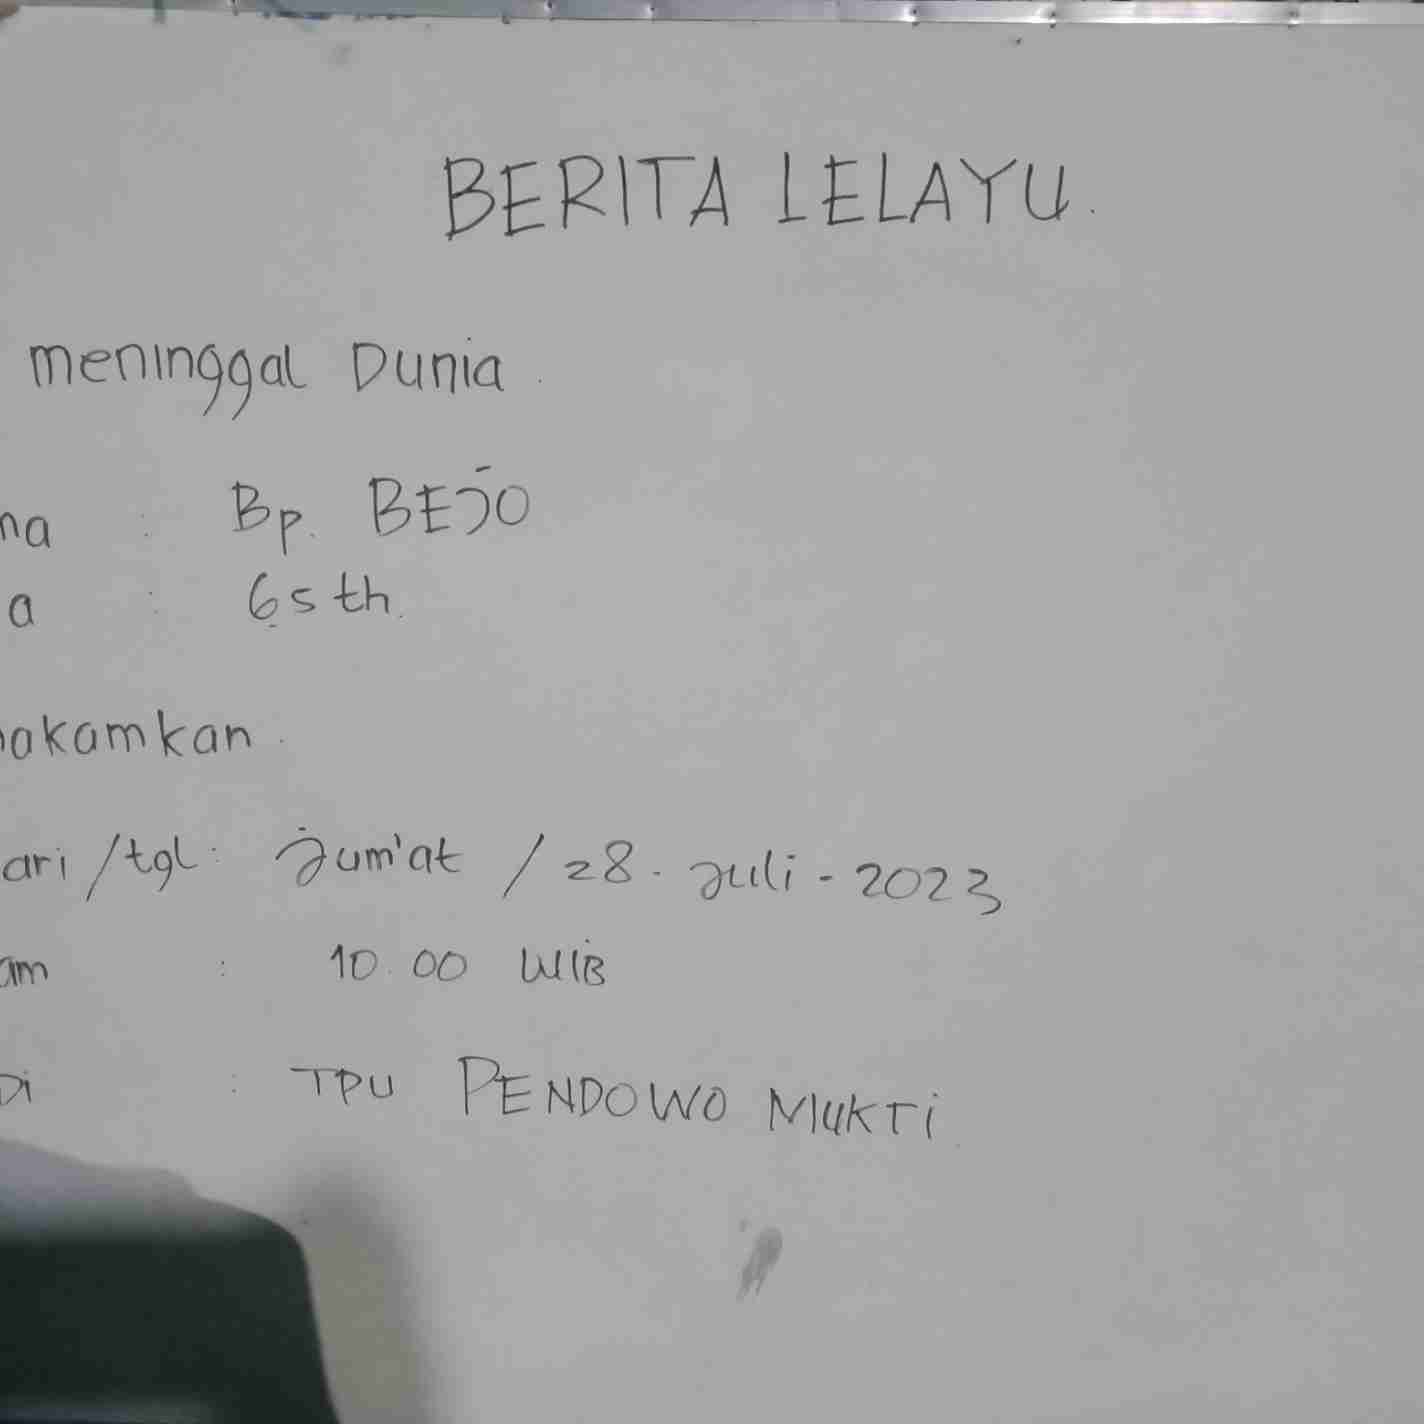 BERITA LELAYU.
meninggal Dunia.
na : Bp. BEJO
a : 65 th.
akamkan.
ari /tgl : Jum'at / 28 - Juli - 2023
am : 10.00 WIB
Di : TPU PENDOWO MUKTi.